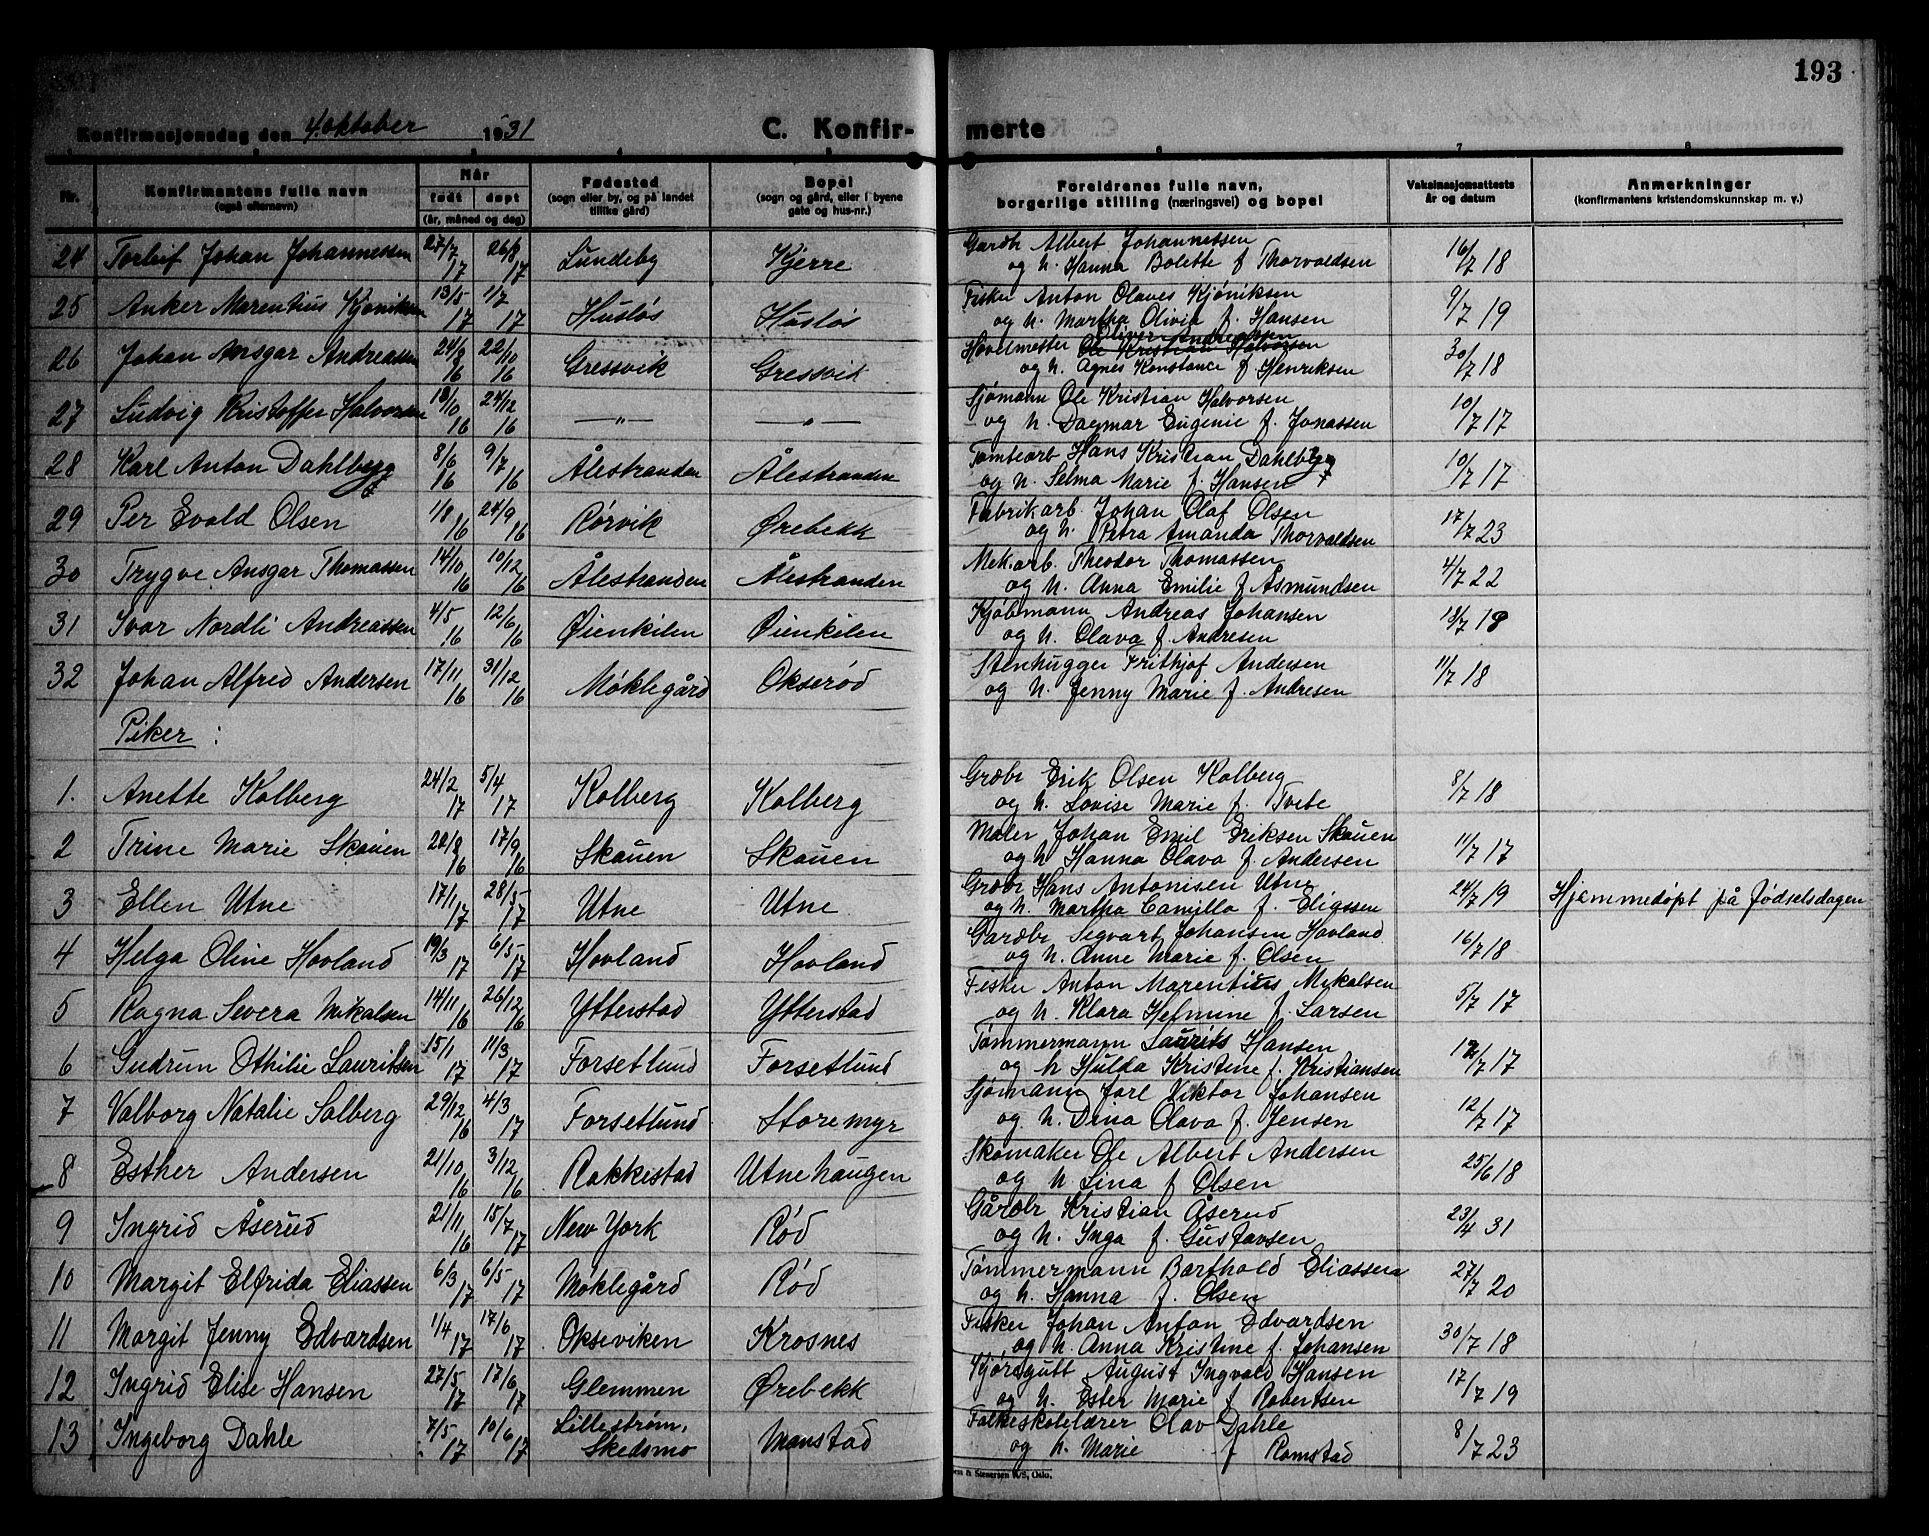 193
Konfirmasjonsdag den 4. oktober 1931
C. Konfirmerte
Nr.
Konfirmantens fulle navn
(også efternavn)
Når
født
døpt
(år, måned og dag)
Fødested
(sogn eller by, og på landet
tillike gård)
Bopel
(sogn og gård, eller i byene
gate og hus-nr.)
Foreldrenes fulle navn,
borgerlige stilling (næringsvei) og bopel
Vaksinasjonsattests
år og datum
Anmerkninger
(konfirmantens kristendomskunnskap m. v.)
24 Torleif Johan Johannessen 27/7 17 26/8 17 Lundeby Kjerre Gardbr Albert Johannessen 16/7 18
og h. Hanna Bolette f Thorvaldsen
25 Anker Marentius Kjøniksen 13/5 17 1/7 17 Husløs Husløs Fisker Anton Olaves Kjøniksen 9/7 19
og h. Martha Olivia f. Hansen
26 Johan Ansgar Andreassen 24/9 16 22/10 16 Gressvik Gressvik Hovelmester Oliver Andreassen 30/7 18
og h. Agnes Konstance f Henriksen
27 Ludvig Kristoffer Halvorsen 18/10 16 24/12 16 — " — — " — Sjømann Ole Kristian Halvorsen 10/7 17
og h. Dagmar Eugenie f. Jonassen
28 Karl Anton Dahlberg 8/6 16 9/7 16 Ålestranden Ålestranden Tomtearb Hans Kristian Dahlberg 10/7 17
og h. Selma Marie f. Hansen
29 Per Evald Olsen 1/8 16 24/9 16 Rørvik Ørebekk Fabrik.arb. Johan Olaf Olsen 17/7 23
og h. Petra Amanda Thorvaldsen
30 Trygve Ansgar Thomassen 14/10 16 10/12 16 Ålestranden Ålestranden Mek.arb. Theodor Thomassen 4/7 22
og h. Anna Emilie f Asmundsen
31 Ivar Nordli Andreassen 4/5 16 12/6 16 Øienkilen Øienkilen Kjøbmann Andreas Johansen 12/7 18
og h. Olava f. Andresen
32 Johan Alfred Andersen 17/11 16 31/12 16 Møklegård Okserød Stenhugger Frithjof Andersen 11/7 18
og h. Jenny Marie f. Andresen
Piker :
1. Anette Kolberg 24/2 17 5/4 17 Kolberg Kolberg Grdbr Erik Olsen Kolberg 8/7 18
og h. Lovise Marie f. Tvete
2 Trine Marie Skauen 28/8 16 17/9 16 Skauen Skauen Maler Johan Emil Eriksen Skauen 11/7 17
og h Hanna Olava f. Andersen
3 Ellen Utne 17/1 17 28/5 17 Utne Utne Grdbr Hans Antonisen Utne 24/7 19 Hjemmedøpt på fødselsdagen
og h. Martha Camilla f. Eliassen
4 Helga Oline Hovland 19/3 17 6/5 17 Hovland Hovland Gardbr Segvart Johansen Hovland 16/7 18
og h. Anne Marie f. Olsen
5 Ragna Severa Mikalsen 14/11 16 26/12 16 Ytterstad Ytterstad Fisker Anton Marentius Mikalsen 5/7 17
og h. Klara Helmine f. Larsen
6 Gudrun Othilie Lauritsen 15/1 17 11/3 17 Forsetlund Forsetlund Tømmermann Laurits Hansen 12/7 17
og h Hulda Kristine f. Kristiansen
7 Valborg Natalie Solberg 29/12 16 4/3 17 Forsetlund Storemyr Sjømann Jarl Viktor Johansen 12/7 17
og h. Dina Olava f. Jensen
8 Esther Andersen 21/10 16 3/12 16 Rakkestad Utnehaugen Skomaker Ole Albert Andersen 25/6 18
og h Lina f Olsen
9 Ingrid Åserud 21/11 16 15/7 17 New York Rød Gårdbr Kristian Åserud 23/4 31
og h. Inga f. Gustavsen
10 Margit Elfrida Eliassen 6/3 17 6/5 17 Møklegård Rød Tømmermann Barthold Eliassen 27/7 20
og h. Hanna f. Olsen
11 Margit Jenny Edvardsen 1/4 17 17/6 17 Okseviken Krosnes Fisker Johan Anton Edvardsen 30/7 18
og h. Anna Kristine f. Johansen
12 Ingrid Elise Hansen 27/5 17 17/6 17 Glemmen Ørebekk August Ingvald Hansen 17/7 19
og h. Ester Marie f Robertsen
13 Ingeborg Dahle 7/5 17 10/6 17 Lillestrøm, Skedsmo Manstad Folkeskolelærer Olav Dahle 8/7 23
og h. Marie f Ramstad
& Stenersen A/S, Oslo.